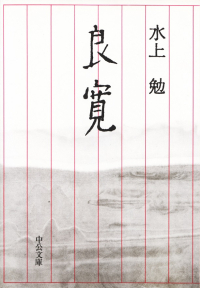 水上 勉
良寛
中公文庫